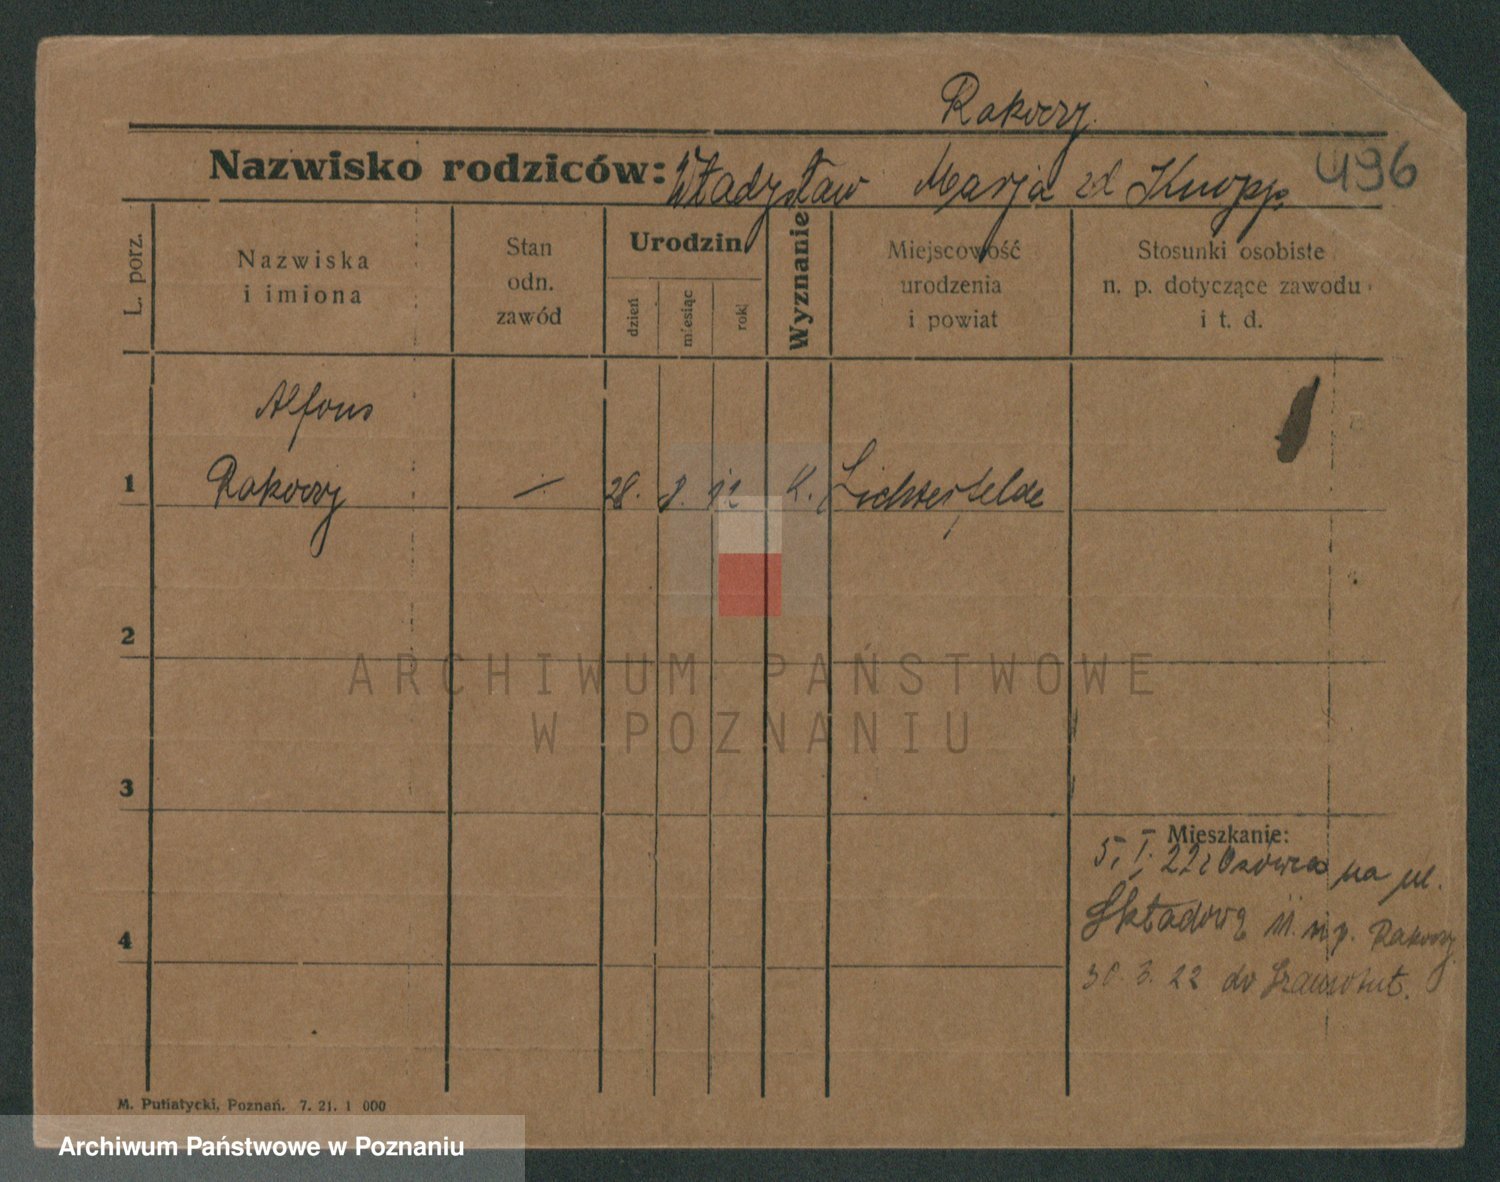 Rakoczy.
Nazwisko rodziców: Władysław Marja zd Knopp.
496
L. porz.
Nazwiska
i imiona
Stan
odn.
zawód
Urodzin
dzień
miesiąc
rok
Wyznanie
Miejscowość
urodzenia
i powiat
Stosunki osobiste
n. p. dotyczące zawodu
i t. d.
Alfons
1 Rakoczy — 28. 8. 12 K. Lichterfelde
2
ARCHIWUM PAŃSTWOWE
W POZNANIU
3
Mieszkanie:
5. I. 22 z na ul.
Składową 11. n p. Rakoczy
4
30. 3. 22 do Szamotuł.
M. Putiatycki, Poznań. 7. 21. 1 000
Archiwum Państwowe w Poznaniu